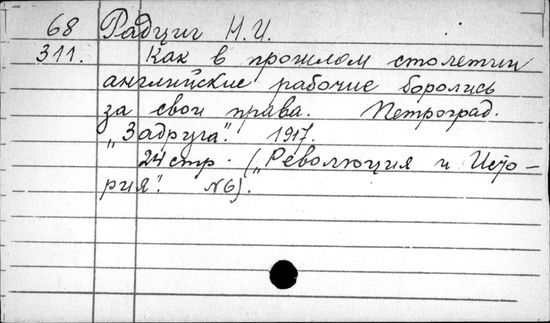 68 Радциг Н.И.
311. Как в прошлом столетии
английские рабочие боролись
за свои права. Петроград.
„Задруга". 1917.
24 стр. („Революция и Исто-
рия". №6).